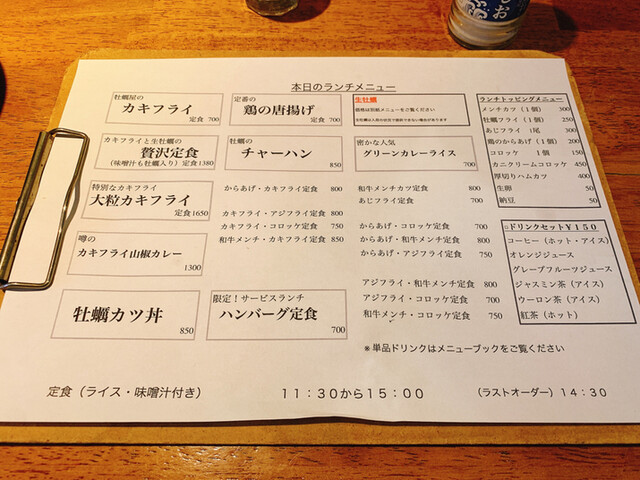 しお
本日のランチメニュー
牡蠣屋の
カキフライ
定食 700
定番の
鶏の唐揚げ
定食 700
生牡蠣
価格は別紙メニューをご覧ください
カキフライと生牡蠣の
贅沢定食
(味噌汁も牡蠣入り) 定食1380
牡蠣の
チャーハン
850
密かな人気
グリーンカレーライス
700
特別なカキフライ
大粒カキフライ
定食1650
噂の
カキフライ山椒カレー
1300
牡蠣カツ丼
850
限定!サービスランチ
ハンバーグ定食
700
からあげ・カキフライ定食 800
カキフライ・アジフライ定食 800
カキフライ・コロッケ定食 750
和牛メンチ・カキフライ定食 850
和牛メンチカツ定食 800
あじフライ定食 700
からあげ・コロッケ定食 700
からあげ・和牛メンチ定食 800
からあげ・アジフライ定食 750
アジフライ・和牛メンチ定食 800
アジフライ・コロッケ定食 700
和牛メンチ・コロッケ定食 750
※単品ドリンクはメニューブックをご覧ください
ランチトッピングメニュー
メンチカツ(1個) 300
牡蠣フライ(1個) 250
あじフライ 1尾 300
鶏のからあげ(1個) 200
コロッケ 1個 150
カニクリームコロッケ 450
厚切りハムカツ 400
生卵 50
納豆 50
□ドリンクセット¥150
コーヒー(ホット・アイス)
オレンジジュース
グレープフルーツジュース
ジャスミン茶(アイス)
ウーロン茶(アイス)
紅茶(ホット)
定食(ライス・味噌汁付き)
11:30から15:00
(ラストオーダー)14:30